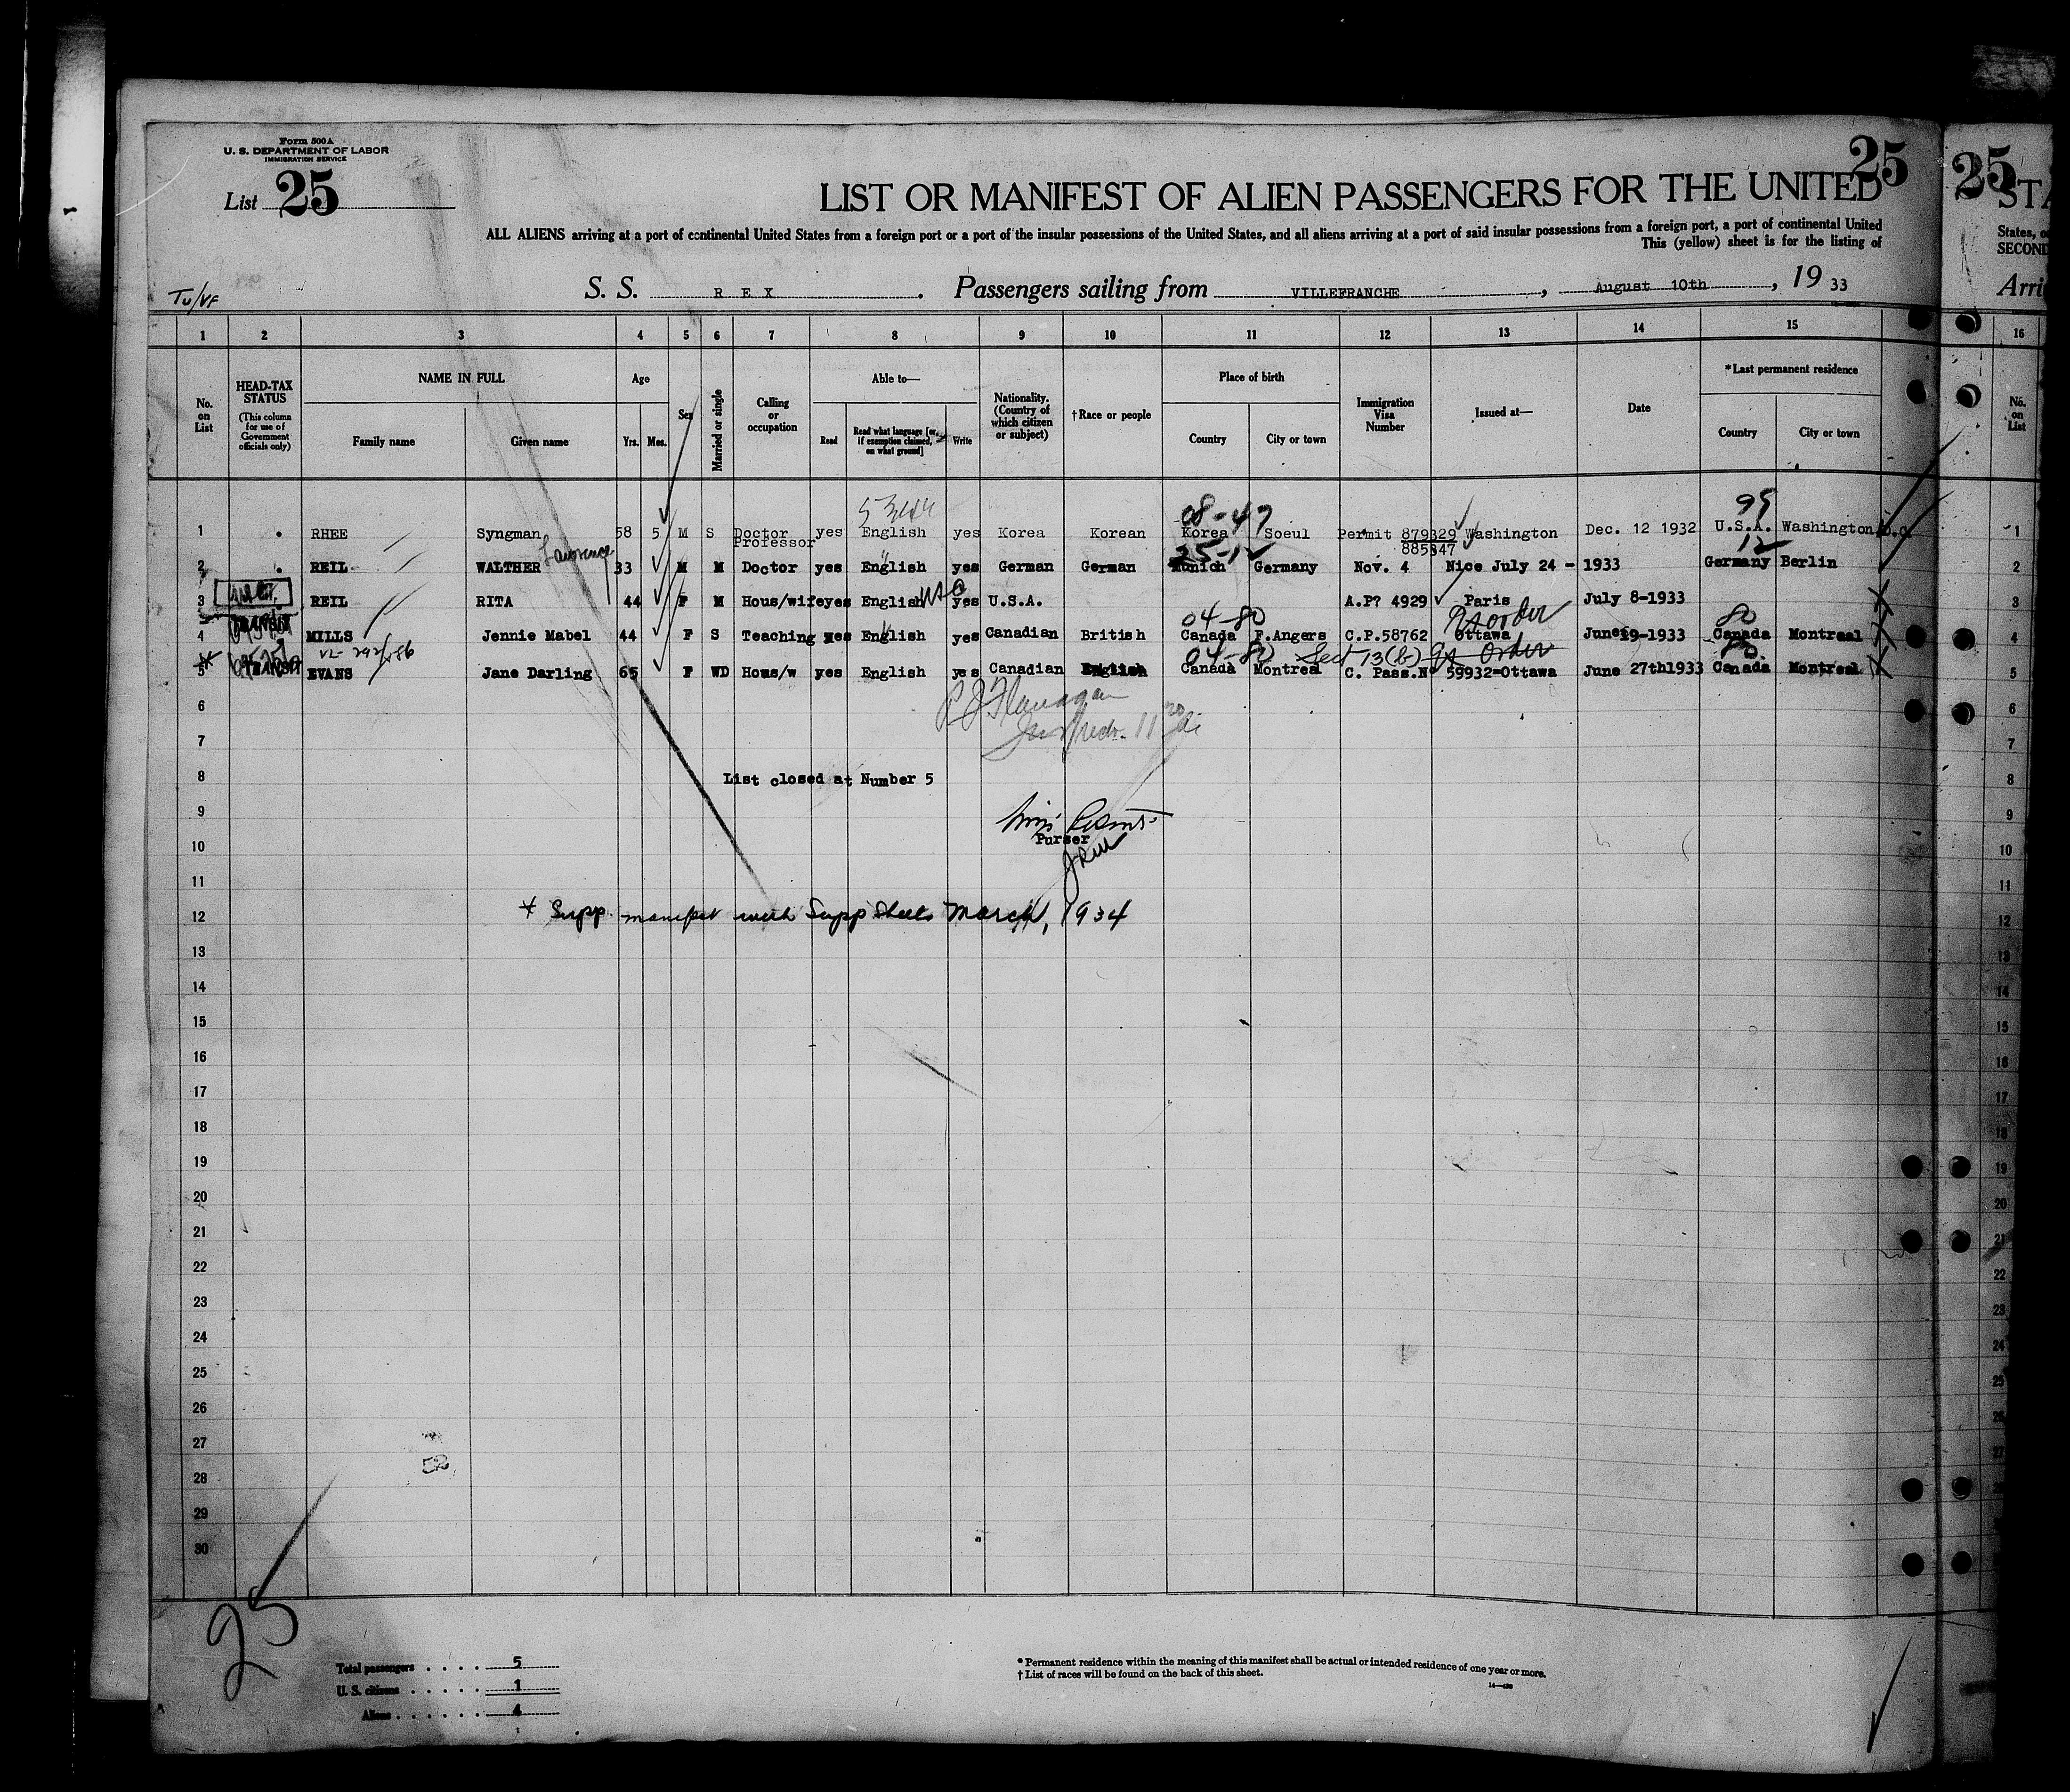 Form 500A
U. S. DEPARTMENT OF LABOR
IMMIGRATION SERVICE
List 25
25
25
LIST OR MANIFEST OF ALIEN PASSENGERS FOR THE UNITED
STA
ALL ALIENS arriving at a port of continental United States from a foreign port or a port of the insular possessions of the United States, and all aliens arriving at a port of said insular possessions from a foreign port, a port of continental United
States, o
This (yellow) sheet is for the listing of
SECOND
Tu/VF
S. S. R E X . Passengers sailing from VILLEFRANCHE , August 10th , 19 33
Arri
1 2 3 4 5 6 7 8 9 10 11 12 13 14 15 16
No. on List
HEAD-TAX STATUS
(This column for use of Government officials only)
NAME IN FULL
Family name Given name
Age
Yrs. Mos.
Sex
Married or single
Calling or occupation
Able to—
Read
Read what language [or, if exemption claimed, on what ground]
Write
Nationality. (Country of which citizen or subject)
†Race or people
Place of birth
Country City or town
Immigration Visa Number
Issued at—
Date
*Last permanent residence
Country City or town
No. on List
08-47 95
1 RHEE Syngman 58 5 M S Doctor Professor yes English yes Korea Korean Korea Soeul Permit 879329 885347 Washington Dec. 12 1932 U.S.A. Washington D.C. 1
Lawrence 25-12 12
2 REIL WALTHER 33 M M Doctor yes English yes German German Munich Germany Nov. 4 Nice July 24 - 1933 Germany Berlin 2
3 REIL RITA 44 F M Hous/wife yes English USC yes U.S.A. A.P? 4929 Paris July 8-1933 3
04-80 80
4 TRANSIT MILLS Jennie Mabel 44 F S Teaching yes English yes Canadian British Canada F.Angers C.P.58762 Ottawa June 19-1933 Canada Montreal 4
04-80 Sect 13(b) 80
5 TRANSIT EVANS Jane Darling 65 F WD Hous/w yes English yes Canadian English Canada Montreal C. Pass.N° 59932=Ottawa June 27th1933 Canada Montreal 5
6 6
P J Flanagan
7 7
8 List closed at Number 5 8
9 9
Purser
10 10
11 11
12 * Supp. manifest with Supp Sheets March, 1934 12
13 13
14 14
15 15
16 16
17 17
18 18
19 19
20 20
21 21
22 22
23 23
24 24
25 25
26 26
27 27
52
28
29
30
25
Total passengers . . . . 5
U. S. citizens . . . . . 1
Aliens . . . . . . 4
* Permanent residence within the meaning of this manifest shall be actual or intended residence of one year or more.
† List of races will be found on the back of this sheet.